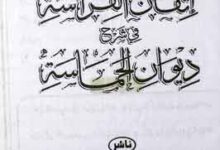 إتقان الفراسة
في شرح
ديوان الحماسة
ناشر